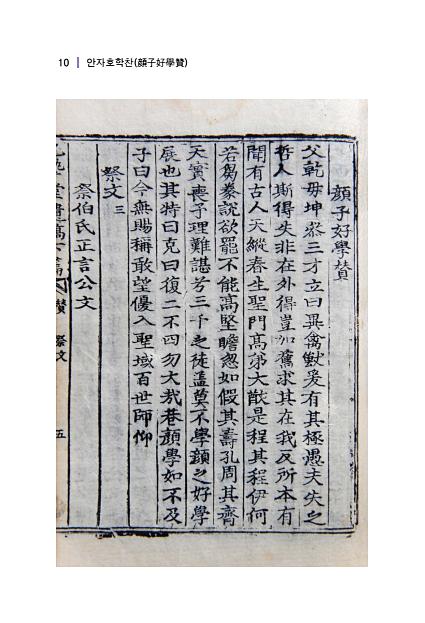 10 | 안자호학찬(顔子好學贊)
顔子好學贊
父乾毋坤叅三才立曰異禽獸爰有其極愚夫失之
哲人斯得失非在外得豈加舊求其在我反所本有
聞有古人天縱春生聖門高第大散是程其程伊何
若芻豢說欲罷不能高堅瞻忽如假其壽孔周其齊
天實喪予理難諶兮三千之徒盖莫不學顔之好學
展也其特曰克曰復二不四勿大哉巷顔學如不及
子曰今無賜稱敢望優入聖域百世師仰
祭文 三
祭伯氏正言公文
贊 祭文 五